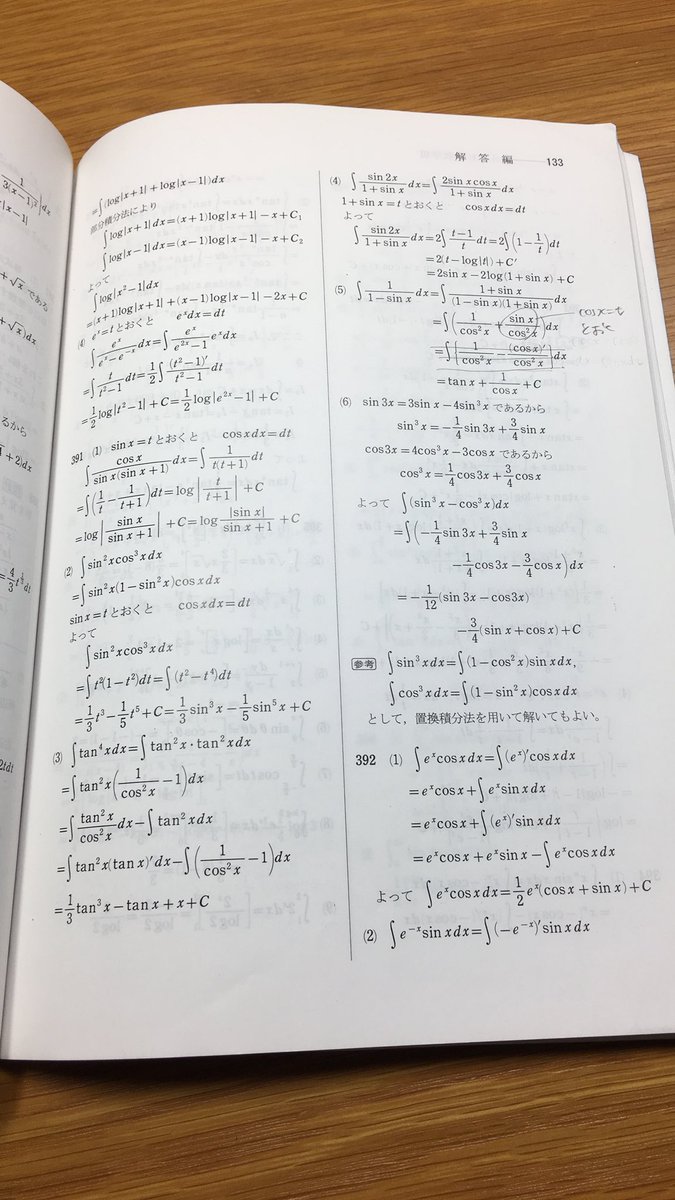 解 答 編 133
=∫(log|x+1|+log|x-1|)dx
部分積分法により
∫log|x+1|dx=(x+1)log|x+1|-x+C₁
∫log|x-1|dx=(x-1)log|x-1|-x+C₂
よって
∫log|x²-1|dx
=(x+1)log|x+1|+(x-1)log|x-1|-2x+C
(4) eˣ=t とおくと eˣdx=dt
∫eˣ/(eˣ-e⁻ˣ)dx=∫eˣ/(e²ˣ-1)eˣdx
=∫t/(t²-1)dt=1/2∫(t²-1)′/(t²-1)dt
=1/2log|t²-1|+C=1/2log|e²ˣ-1|+C
391 (1) sin x=t とおくと cos x dx=dt
∫cos x/(sin x(sin x+1))dx=∫1/(t(t+1))dt
=∫(1/t-1/(t+1))dt=log|t/(t+1)|+C
=log|sin x/(sin x+1)|+C=log |sin x|/(sin x+1)+C
(2) ∫sin²x cos³x dx
=∫sin²x(1-sin²x)cos x dx
sin x=t とおくと cos x dx=dt
よって
∫sin²x cos³x dx
=∫t²(1-t²)dt=∫(t²-t⁴)dt
=1/3t³-1/5t⁵+C=1/3sin³x-1/5sin⁵x+C
(3) ∫tan⁴x dx=∫tan²x・tan²x dx
=∫tan²x(1/cos²x-1)dx
=∫tan²x/cos²x dx-∫tan²x dx
=∫tan²x(tan x)′dx-∫(1/cos²x-1)dx
=1/3tan³x-tan x+x+C
(4) ∫sin 2x/(1+sin x)dx=∫2sin x cos x/(1+sin x)dx
1+sin x=t とおくと cos x dx=dt
よって
∫sin 2x/(1+sin x)dx=2∫(t-1)/t dt=2∫(1-1/t)dt
=2(t-log|t|)+C′
=2sin x-2log(1+sin x)+C
(5) ∫1/(1-sin x)dx=∫(1+sin x)/((1-sin x)(1+sin x))dx
=∫(1/cos²x+sin x/cos²x)dx
cosx=t
とおく
=∫{1/cos²x-(cos x)′/cos²x}dx
=tan x+1/cos x+C
(6) sin 3x=3sin x-4sin³x であるから
sin³x=-1/4sin 3x+3/4sin x
cos 3x=4cos³x-3cos x であるから
cos³x=1/4cos 3x+3/4cos x
よって ∫(sin³x-cos³x)dx
=∫(-1/4sin 3x+3/4sin x
-1/4cos 3x-3/4cos x)dx
=-1/12(sin 3x-cos 3x)
-3/4(sin x+cos x)+C
参考 ∫sin³x dx=∫(1-cos²x)sin x dx,
∫cos³x dx=∫(1-sin²x)cos x dx
として，置換積分法を用いて解いてもよい。
392 (1) ∫eˣcos x dx=∫(eˣ)′cos x dx
=eˣcos x+∫eˣsin x dx
=eˣcos x+∫(eˣ)′sin x dx
=eˣcos x+eˣsin x-∫eˣcos x dx
よって ∫eˣcos x dx=1/2eˣ(cos x+sin x)+C
(2) ∫e⁻ˣsin x dx=∫(-e⁻ˣ)′sin x dx